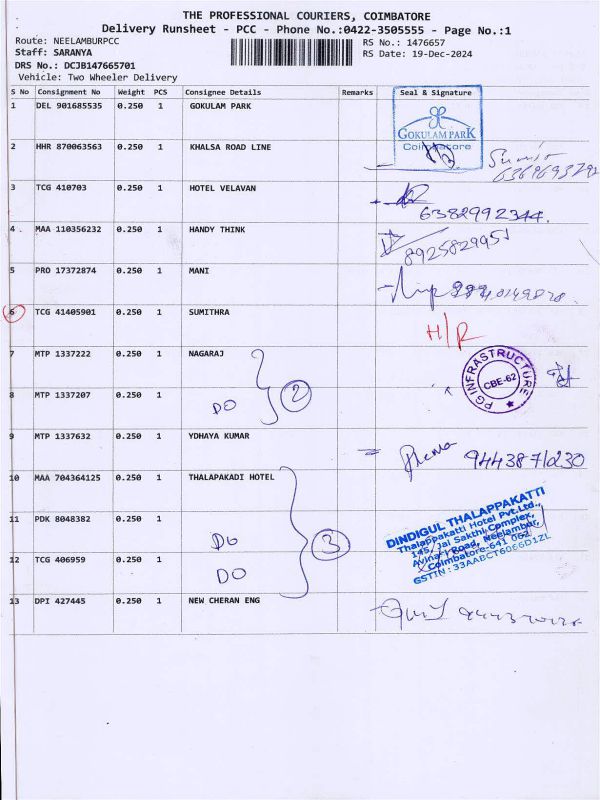 THE PROFESSIONAL COURIERS, COIMBATORE
Delivery Runsheet - PCC - Phone No.:0422-3505555 - Page No.:1
Route: NEELAMBURPCC
RS No.: 1476657
Staff: SARANYA
RS Date: 19-Dec-2024
DRS No.: DCJB147665701
Vehicle: Two Wheeler Delivery
S No Consignment No Weight PCS Consignee Details Remarks Seal & Signature
1 DEL 901685535 0.250 1 GOKULAM PARK
GOKULAM PARK
Coimbatore
2 HHR 870063563 0.250 1 KHALSA ROAD LINE
3 TCG 410703 0.250 1 HOTEL VELAVAN
6382992344.
4 MAA 110356232 0.250 1 HANDY THINK
8925829951
5 PRO 17372874 0.250 1 MANI
6 TCG 41405901 0.250 1 SUMITHRA
H/R
7 MTP 1337222 0.250 1 NAGARAJ
PG INFRASTRUCTURE
CBE-62
8 MTP 1337207 0.250 1
DO 2
9 MTP 1337632 0.250 1 YDHAYA KUMAR
9443871230
10 MAA 704364125 0.250 1 THALAPAKADI HOTEL
11 PDK 8048382 0.250 1
DO 3
12 TCG 406959 0.250 1
DO
DINDIGUL THALAPPAKATTI
Thalappakatti Hotel Pvt.Ltd.,
145, Jai Sakthi Complex,
Avinasi Road, Neelambur,
Coimbatore-641 062
GSTIN : 33AABCT6066D1ZL
13 DPI 427445 0.250 1 NEW CHERAN ENG